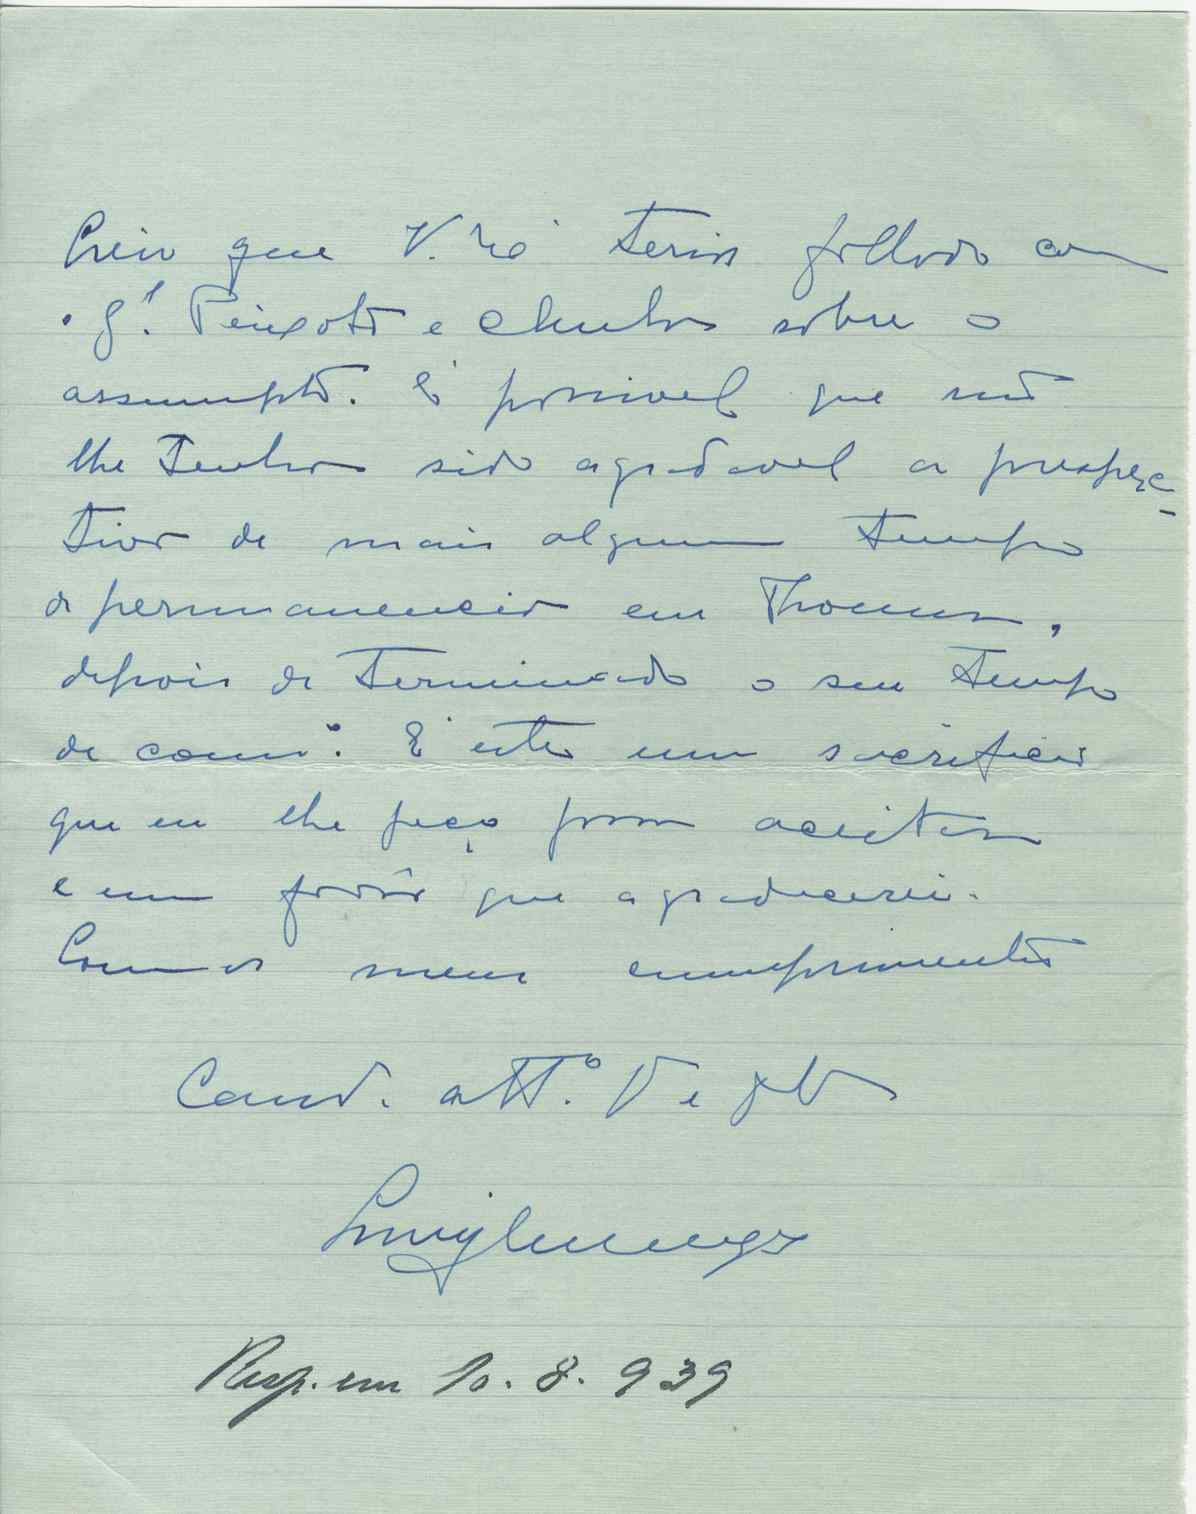 Creio que V. Exª teria fallado com
o Gl. Peixoto e Cunha sobre o
assumpto. É possivel que não
lhe tenha sido agradavel a prespec-
tiva de mais algum tempo
de permanencia em Thomar,
depois de terminado o seu tempo
de comº. É este um sacrificio
que eu lhe peço para aceitar
e um favôr que agradecerei.
Com os meus cumprimentos
Camd. attº. V e
Resp. em 10.8.939